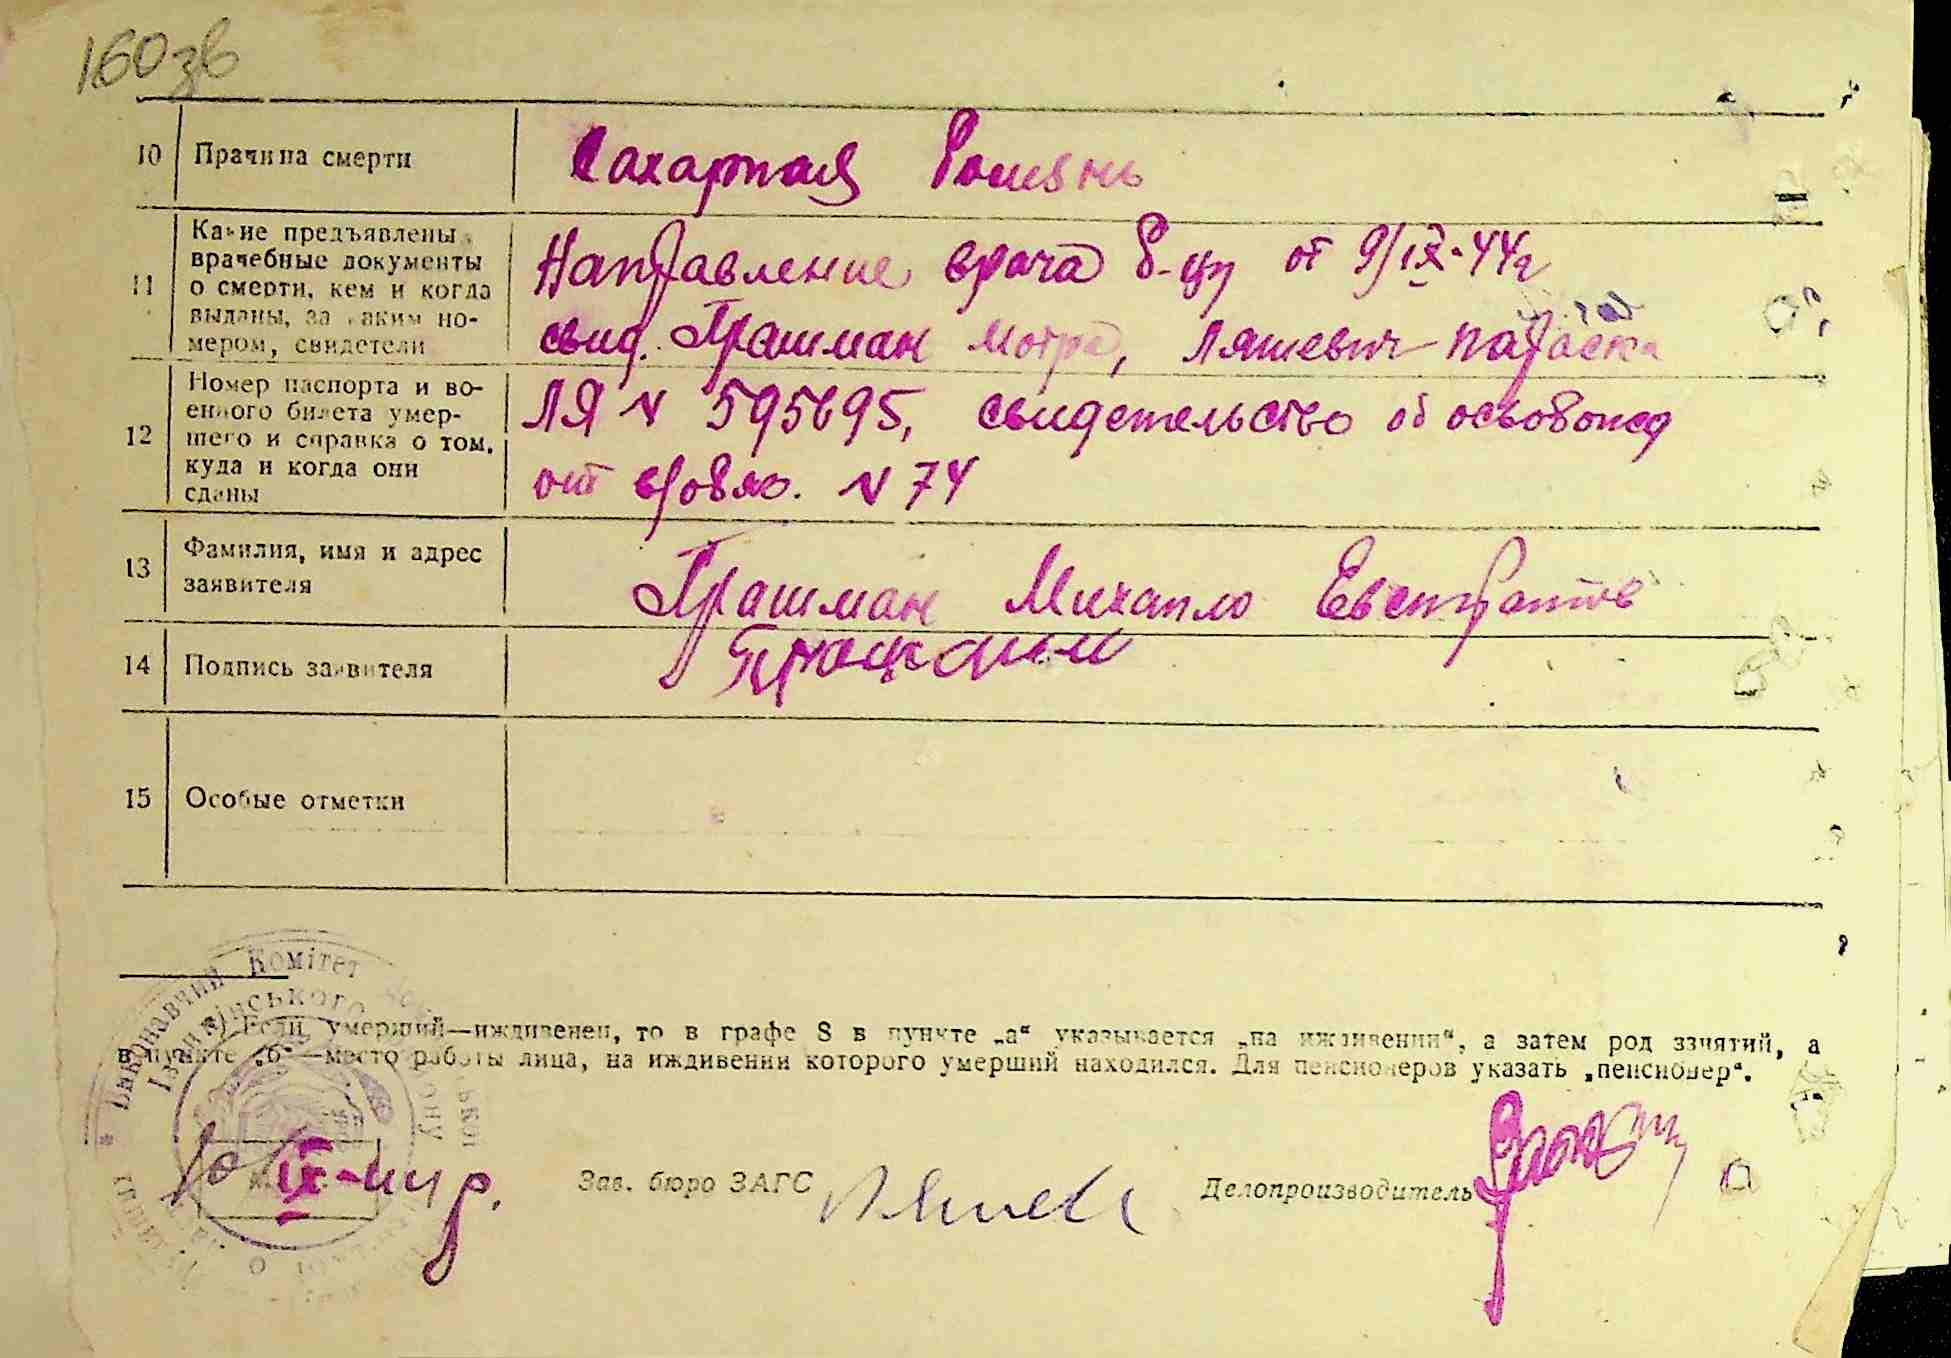 160зв
10 Причина смерти Сахарная болезнь
11 Какие предъявлены
врачебные документы
о смерти, кем и когда
выданы, за каким но-
мером, свидетели
Направление врача б-цы от 9/IX-44г
свид. Грашман Мотря, Ляшевич Параска
12 Номер паспорта и во-
енного билета умер-
шего и справка о том,
куда и когда они
сданы
ЛЯ N 595695, свидетельство об освобожд
от N 74
13 Фамилия, имя и адрес
заявителя
Грашман Михайло Евстратов
14 Подпись заявителя Грашман
15 Особые отметки
Виконавчий Комітет
*) Если умерший—иждивенец, то в графе 8 в пункте „а“ указывается „на иждивении“, а затем род занятий, а
в пункте „б“—место работы лица, на иждивении которого умерший находился. Для пенсионеров указать „пенсионер“.
10/IX-44 р. Зав. бюро ЗАГС Делопроизводитель